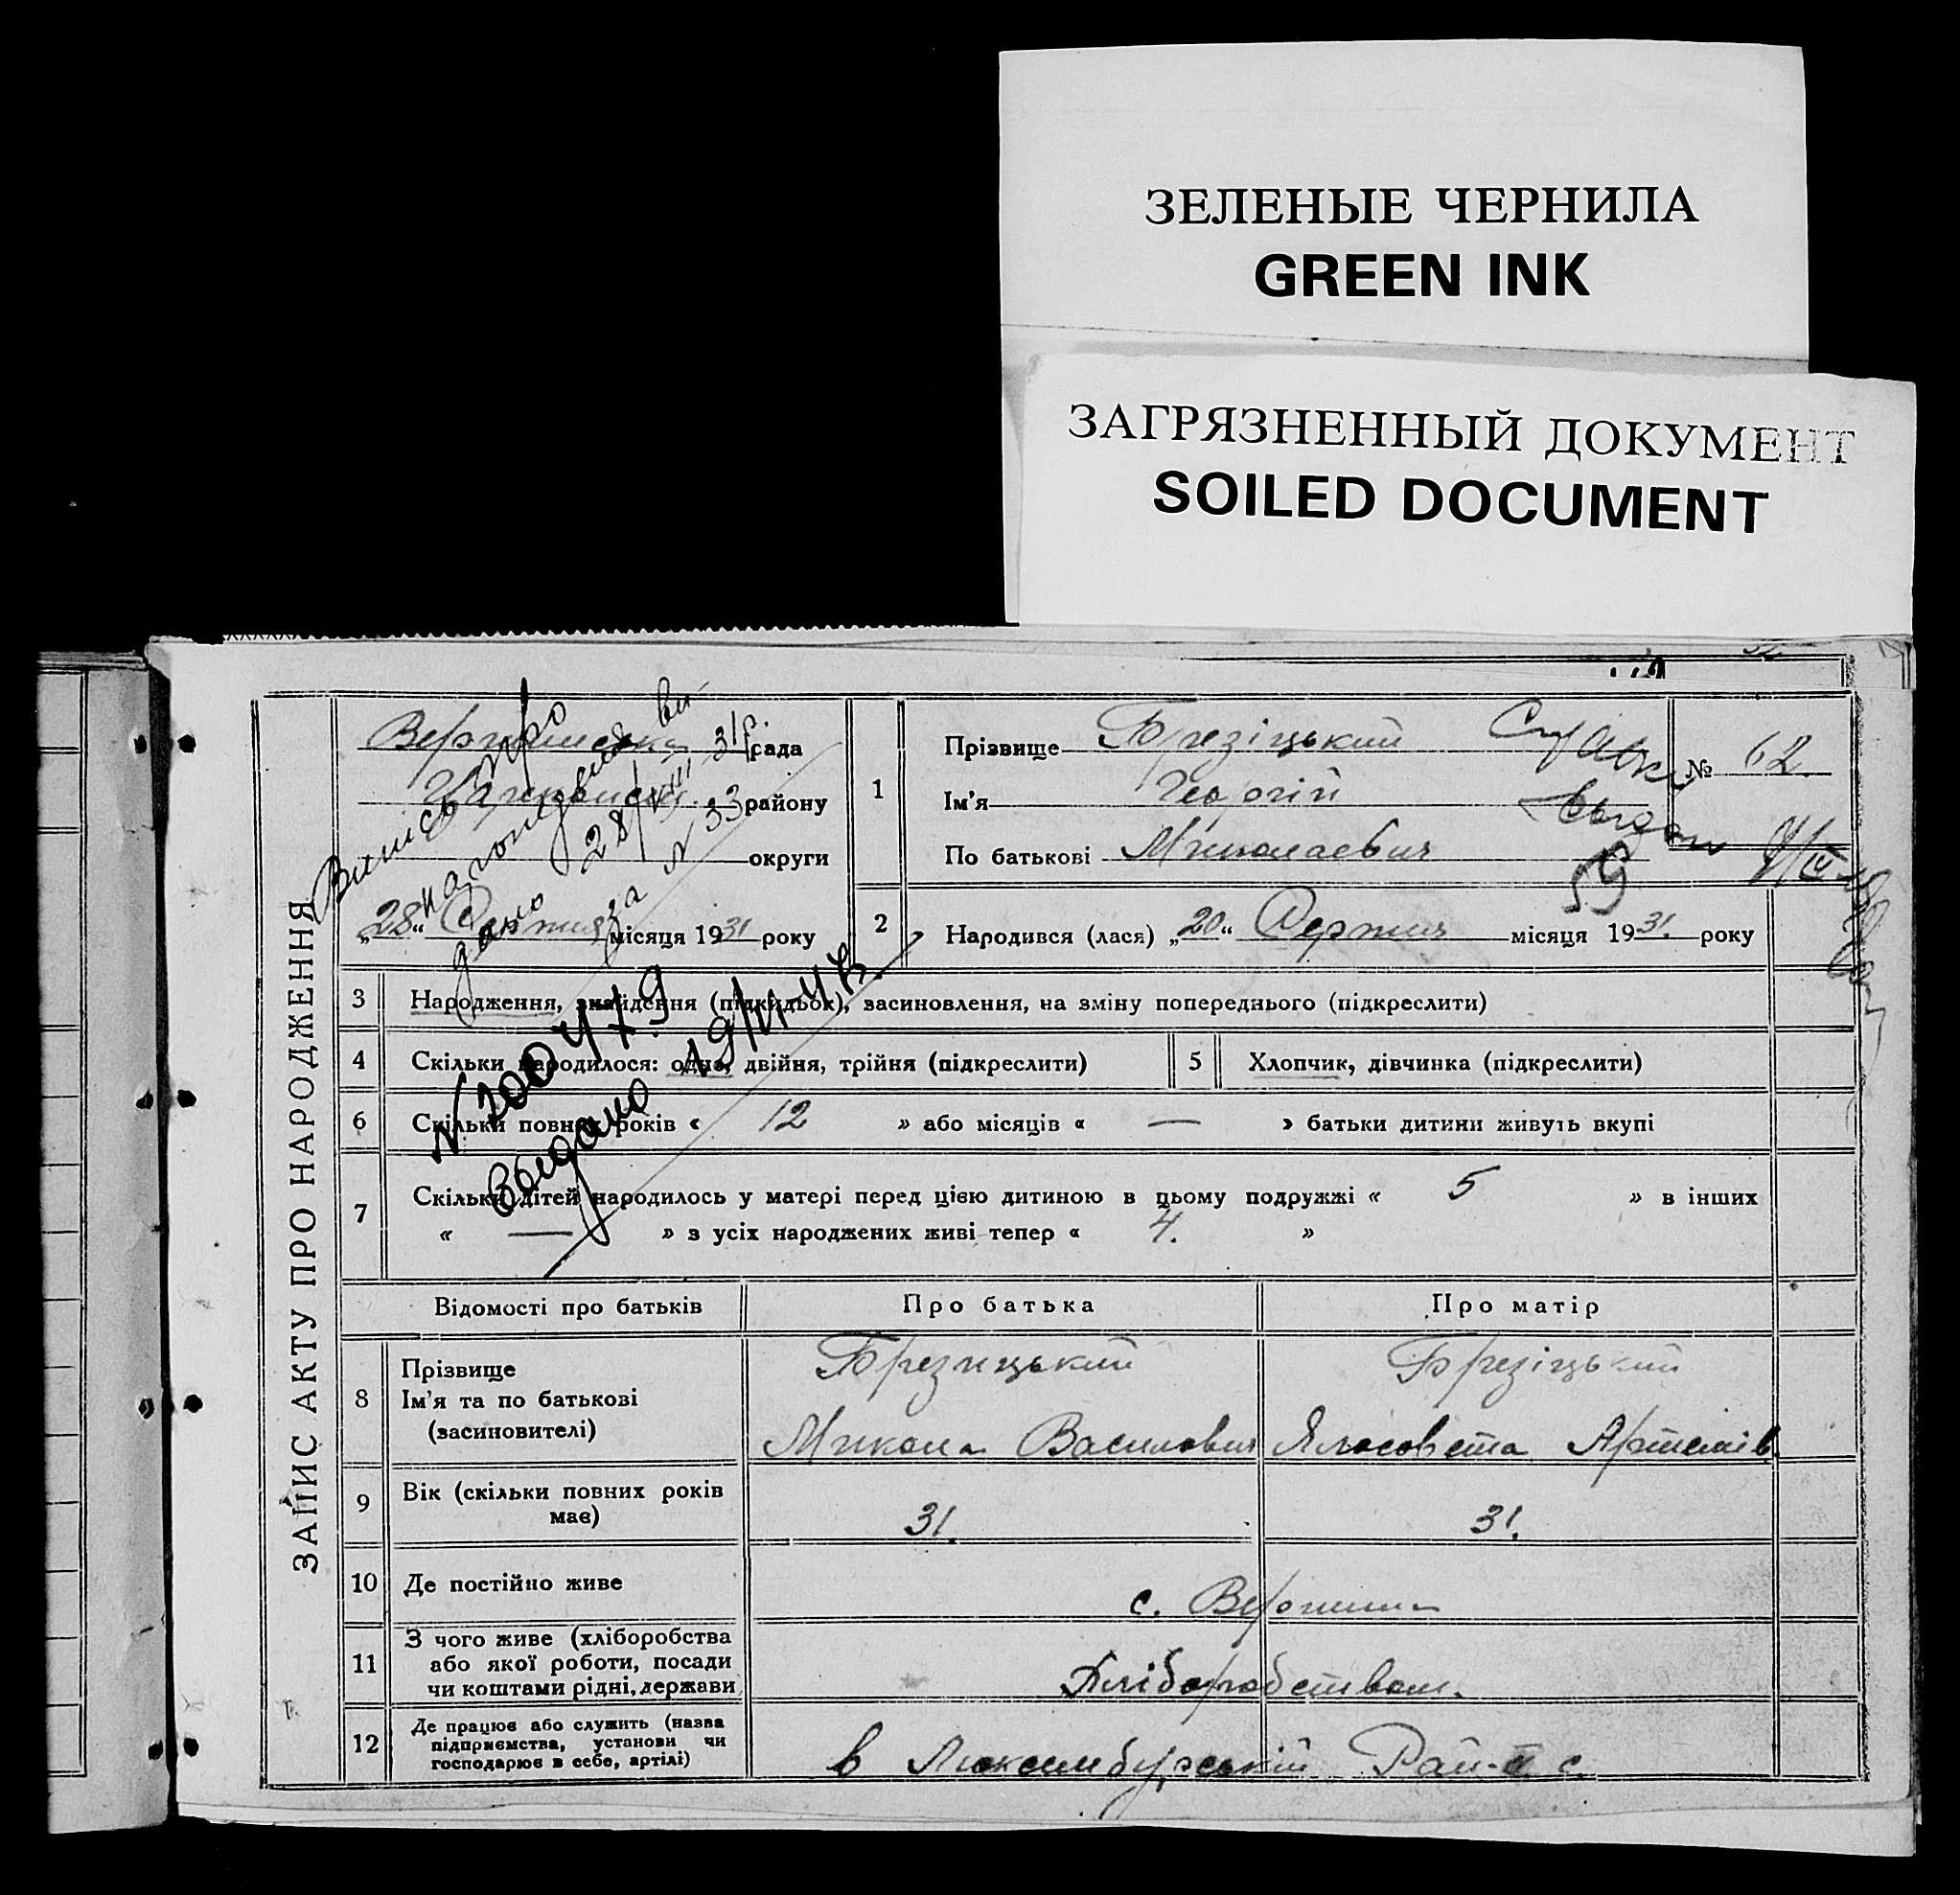 ЗЕЛЕНЫЕ ЧЕРНИЛА
GREEN INK
ЗАГРЯЗНЕННЫЙ ДОКУМЕНТ
SOILED DOCUMENT
ЗАПИС АКТУ ПРО НАРОДЖЕННЯ
рада
району
округи
„28“ Серпня місяця 1931 року
Випись про
дано 28/VIII 31р.
за № 33
1 Прізвище Брезіцький
Ім'я Георгій
По батькові Миколаевич
№ 62.
59
2 Народився (лася) „20“ Серпня місяця 1931. року
3 Народження, знайдення (підкидьок), засиновлення, на зміну попереднього (підкреслити)
4 Скільки народилося: одна, двійня, трійня (підкреслити)
5 Хлопчик, дівчинка (підкреслити)
6 Скільки повних років « 12 » або місяців « — » батьки дитини живуть вкупі
7 Скільки дітей народилось у матері перед цією дитиною в цьому подружжі « 5 » в інших
« — » з усіх народжених живі тепер « 4. »
выдано
Відомості про батьків Про батька Про матір
8 Прізвище
Ім'я та по батькові
(засиновителі)
Брезицький
Микола Василович
Брезіцький
Ялосовета Артемів.
9 Вік (скільки повних років
має)
31.
31.
10 Де постійно живе
с.
11 З чого живе (хліборобства
або якої роботи, посади
чи коштами рідні, держави
Хліборобством.
12 Де працює або служить (назва
підприємства, установи чи
господарює в себе, артілі)
в Люксембурській Рай